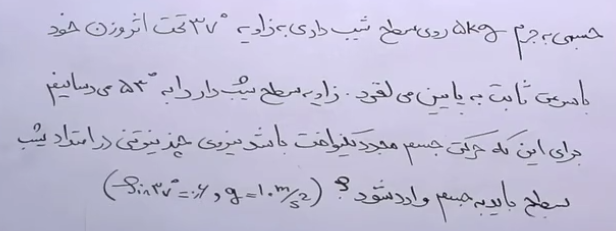 جسمی به جرم ۵kg روی سطح شیب داری به زاویه ۳۷° تحت اثر وزن خود
با سرعتی ثابت به پایین می لغزد. زاویه سطح شیب دار را به ۵۳° می رسانیم
برای این که حرکت جسم مجدد یکنواخت باشد نیروی چند نیوتنی در امتداد شیب
سطح باید به جسم وارد شود؟ (Sin۳۷°=۰/۶ و g=۱۰m/s²)